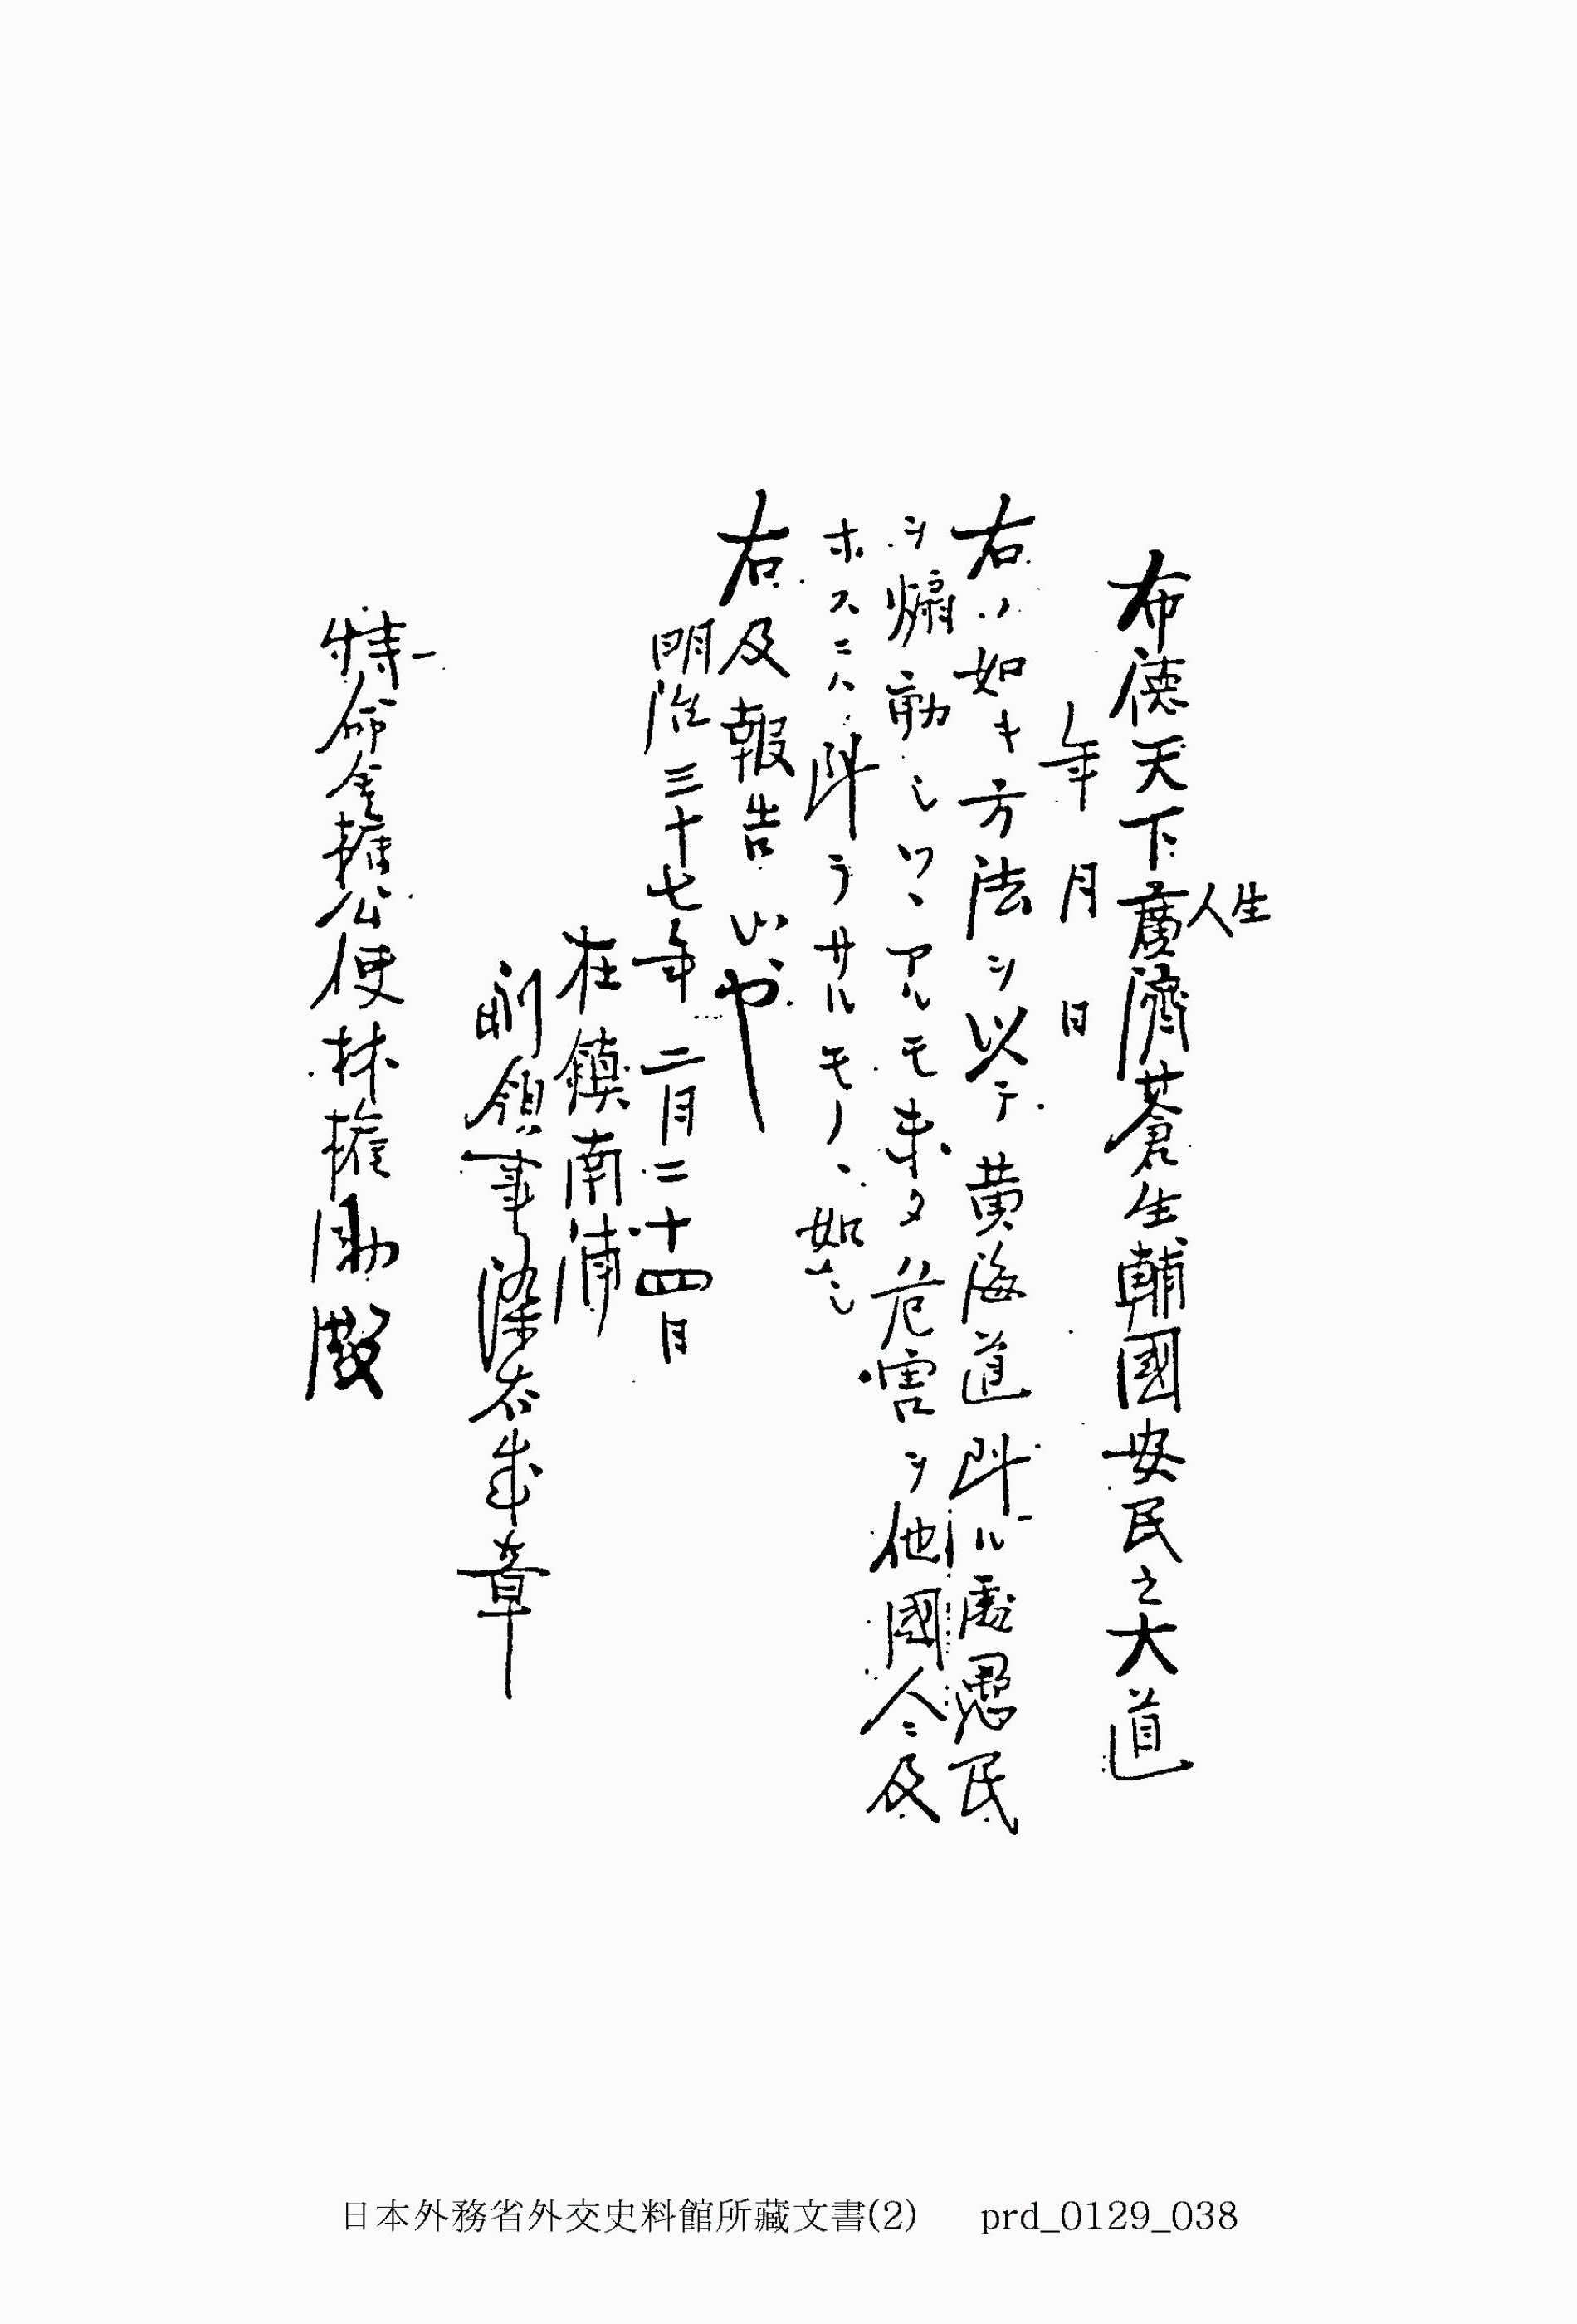 布德天下廣濟蒼生輔國安民之大道
人生
年 月 日
右ハ如キ方法ヲ以テ黄海道到ル處愚民
ヲ煽動シツヽアルモ未タ危害ヲ他國人ニ及
ホスニハ到ラサルモノヽ如シ
右及報告候也
明治三十七年二月二十四日
在鎮南浦
副領事染谷成章
特命全權公使林權助殿
日本外務省外交史料館所藏文書(2) prd_0129_038